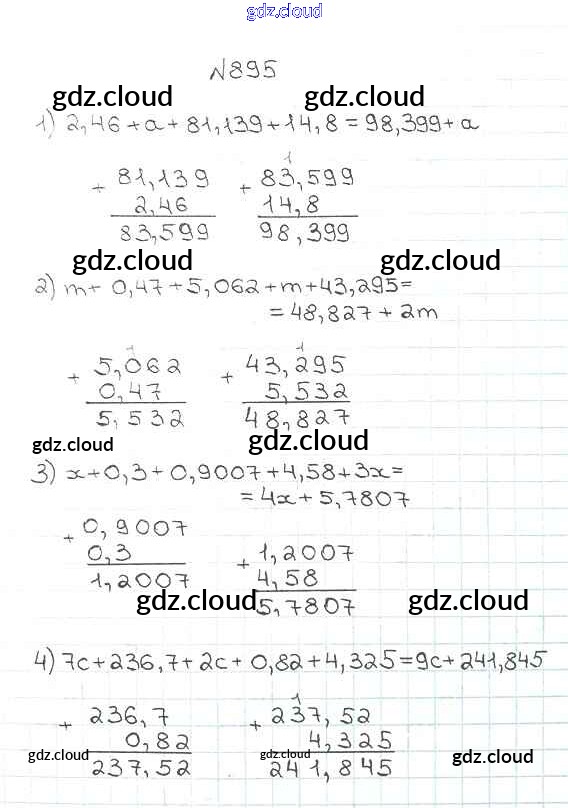 gdz.cloud
№895
gdz.cloud gdz.cloud
1) 2,46 + a + 81,139 + 14,8 = 98,399 + a
1
+ 81,139 + 83,599
2,46 14,8
83,599 98,399
gdz.cloud gdz.cloud
2) m + 0,47 + 5,062 + m + 43,295 =
= 48,827 + 2m
1 1
+ 5,062 + 43,295
0,47 5,532
5,532 48,827
gdz.cloud gdz.cloud
3) x + 0,3 + 0,9007 + 4,58 + 3x =
= 4x + 5,7807
+ 0,9007
0,3 + 1,2007
1,2007 4,58
gdz.cloud 5,7807 gdz.cloud
4) 7c + 236,7 + 2c + 0,82 + 4,325 = 9c + 241,845
1
+ 236,7 + 237,52
0,82 4,325
gdz.cloud gdz.cloud gdz.cloud
237,52 241,845